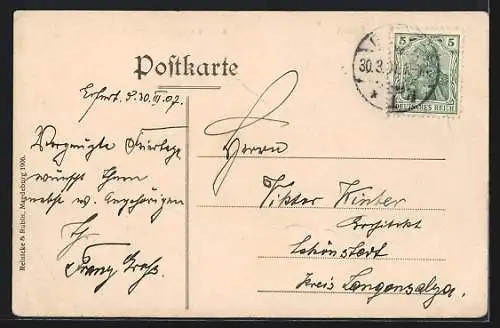 Postkarte
5 5
DEUTSCHES REICH
30.3.
Erfurt, d. 30. III. 07.
Vergnügte Feiertage
wünscht Ihnen
nebst w. Angehörigen
Ihr
Franz Groß.
Herrn
Viktor Winter
Architekt
Schönstedt
Kreis Langensalza.
Reinicke & Rubin, Magdeburg 1906.